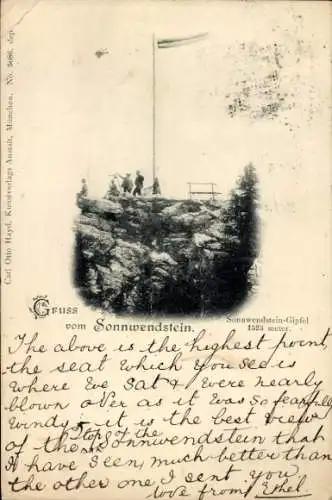 Carl Otto Hayd, Kunstverlags Anstalt, München. No. 5086. dep.
Gruss
vom Sonnwendstein.
Sonnwendstein-Gipfel
1523 meter.
The above is the highest point,
the seat which you see is
where we sat & were nearly
blown over as it was so fearfully
windy, it is the best view
of the Sonnwendstein that
I have seen, much better than
the other one I sent you
love from Ethel